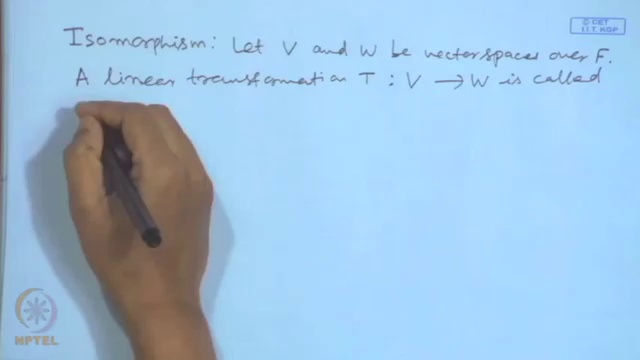 © CET
I.I.T. KGP
Isomorphism: Let V and W be vector spaces over F.
A linear transformation T : V → W is called
NPTEL